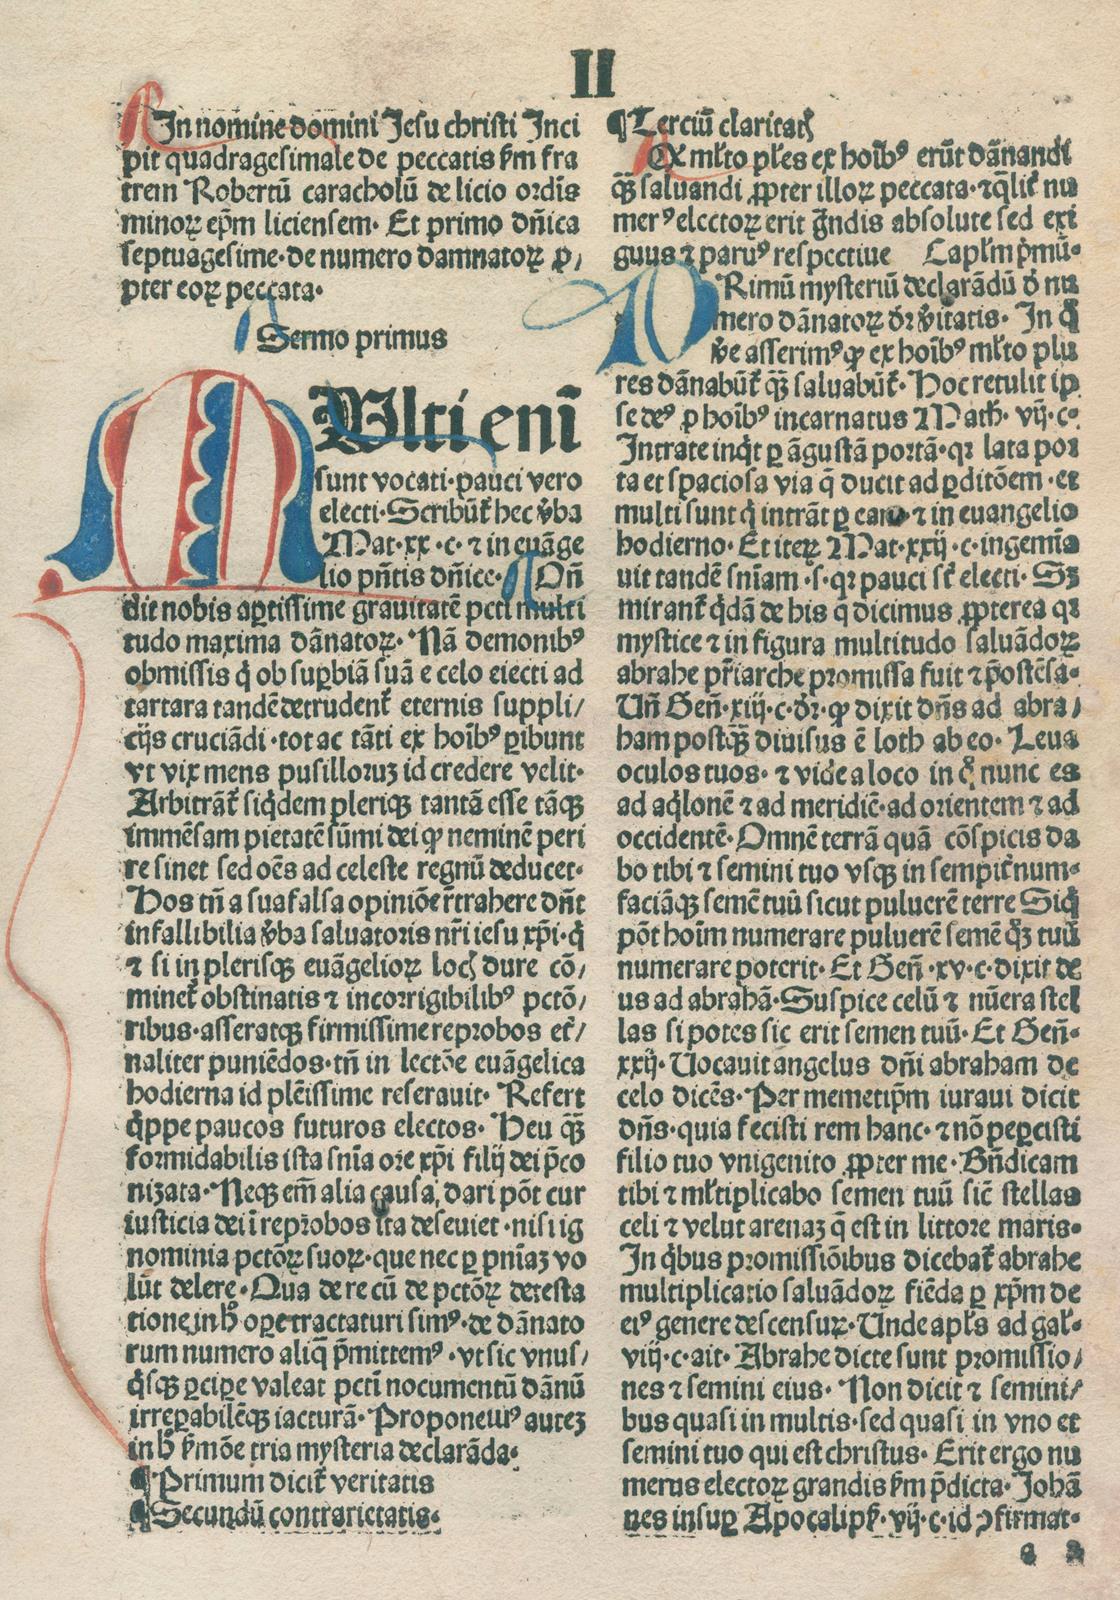 II
In nomine domini Jesu christi Inci
pit quadragesimale de peccatis ẜm fra
trem Robertū caracholū de licio ordīs
minoꝝ ep̄m liciensem· Et primo dn̄ica
septuagesime·de numero damnatoꝝ ꝓ/
pter eoꝝ peccata·
Sermo primus
MUlti enī
sunt vocati·pauci vero
electi·Scribūt᷑ hec v̄ba
Mat·xx·c·⁊ in euāge
lio pn̄tis dn̄ice· On̄
dit nobis aptissime grauitatē pcti multi
tudo maxima dānatoꝝ· Nā demonibꝰ
obmissis q̇ ob suꝑbiā suā e celo eiecti ad
tartara tandē detrudent᷑ eternis suppli/
cijs cruciādi·tot ac tāti ex hoībꝰ ꝑibunt
vt vix mens pusilloruz id credere velit·
Arbitrāt᷑ siq̇dem pleriqꝫ tantā esse tāqꝫ
immēsam pietatē sūmi dei ꝙ neminē peri
re sinet sed oēs ad celeste regnū deducet·
Hos tn̄ a sua falsa opiniōe rtrahere dn̄t
infallibilia v̄ba saluatoris nr̄i iesu xp̄i·q̇
⁊ si in plerisqꝫ euāgelioꝝ locꝭ dure cō/
minet᷑ obstinatis ⁊ incorrigibilibꝰ pctō/
ribus·asseratqꝫ firmissime reprobos et̄/
naliter puniēdos·tn̄ in lectōe euāgelica
hodierna id plēissime reserauit· Refert
q̇ppe paucos futuros electos· Heu qꝫ̄
formidabilis ista sn̄ia ore xp̄i filij dei p̄co
nizata· Neqꝫ em̄ alia causa dari pōt cur
iusticia dei ī reprobos ita deseuiet·nisi ig
nominia pctōꝝ suoꝝ·que nec ꝑ pn̄iaꝫ vo
lūt delere· Qua de re cū de pctōꝝ detesta
tione in h̊ oꝑe tractaturi simꝰ·de dānato
rum numero aliq̄ p̄mittemꝰ·vt sic vnus/
q̇sqꝫ ꝑciꝑe valeat pcti nocumentū dānū
irreꝑabilēqꝫ iacturā· Proponetur autez
in h̊ ẜmōe tria mysteria declarāda·
¶ Primum dicit᷑ veritatis
¶ Secundū contrarietatis·
¶ Terciū claritatꝭ
Qꝫ mlto ples ex hoībꝰ erūt dānandi
qꝫ̄ saluandi ꝓpter illoꝝ peccata·⁊q̄lit᷑ nu
merꝰ electoꝝ erit grandis absolute sed exi
guus ⁊ paruꝰ respectiue Caplm pͥmū·
PRimū mysteriū declarādū d̄ nu
mero dānatoꝝ dr̄ v̄itatis· In q̊
v̄e asserimꝰ ꝙ ex hoībꝰ mlto plu
res dānabūt᷑ qꝫ̄ saluabūt᷑· Hoc retulit ip
se deꝰ ꝑ hoībꝰ incarnatus Math· vij·c·
Intrate inq̇t ꝑ āgustā portā·qꝛ lata por
ta et spaciosa via q̄ ducit ad ꝑditōem·et
multi sunt q̇ intrāt ꝑ eam·⁊ in euangelio
hodierno· Et iteꝝ Mat·xxij·c·ingemīa
uit tandē sn̄iam·s·qꝛ pauci st̄ electi· Sꝫ
mirant᷑ q̇dā de his q̄ dicimus ꝓpterea qꝛ
mystice ⁊ in figura multitudo saluādoꝝ
abrahe pr̄iarche promissa fuit ⁊ p̄ostēsa·
Un̄ Gen̄·xiij·c·dr̄·ꝙ dixit dn̄s ad abra/
ham postqꝫ̄ diuisus ē loth ab eo· Leua
oculos tuos·⁊ vide a loco in q̊ nunc es
ad aq̇lonē ⁊ ad meridiē·ad orientem ⁊ ad
occidentē· Omnē terrā quā cōspicis da
bo tibi ⁊ semini tuo vsqꝫ in sempit᷑num·
faciāqꝫ semē tuū sicut puluerē terre Siq̇
pōt hoīm numerare puluerē semē qꝫ̊ tuū
numerare poterit· Et Gen̄·xv·c·dixit de
us ad abrahā· Suspice celū ⁊ nūera stel
las si potes sic erit semen tuū· Et Gen̄·
xxij· Uocauit angelus dn̄i abraham de
celo dicēs· Per memetip̄m iuraui dicit
dn̄s·quia fecisti rem hanc·⁊ nō peꝑcisti
filio tuo vnigenito ꝓpter me· Bn̄dicam
tibi ⁊ ml̄tiplicabo semen tuū sic̄ stellas
celi ⁊ velut arenaꝫ q̄ est in littore maris·
In q̇bus promissiōibus dicebat᷑ abrahe
multiplicatio saluādoꝝ fiēda ꝑ xp̄m de
eiꝰ genere descensuꝝ· Unde apl̄s ad gal̄·
viij·c·ait· Abrahe dicte sunt promissio/
nes ⁊ semini eius· Non dicit ⁊ semini/
bus quasi in multis·sed quasi in vno et
semini tuo qui est christus· Erit ergo nu
merus electoꝝ grandis ẜm p̄dicta· Johā
nes insuꝑ Apocalipẜ·vij·c·id ↄfirmat·
a